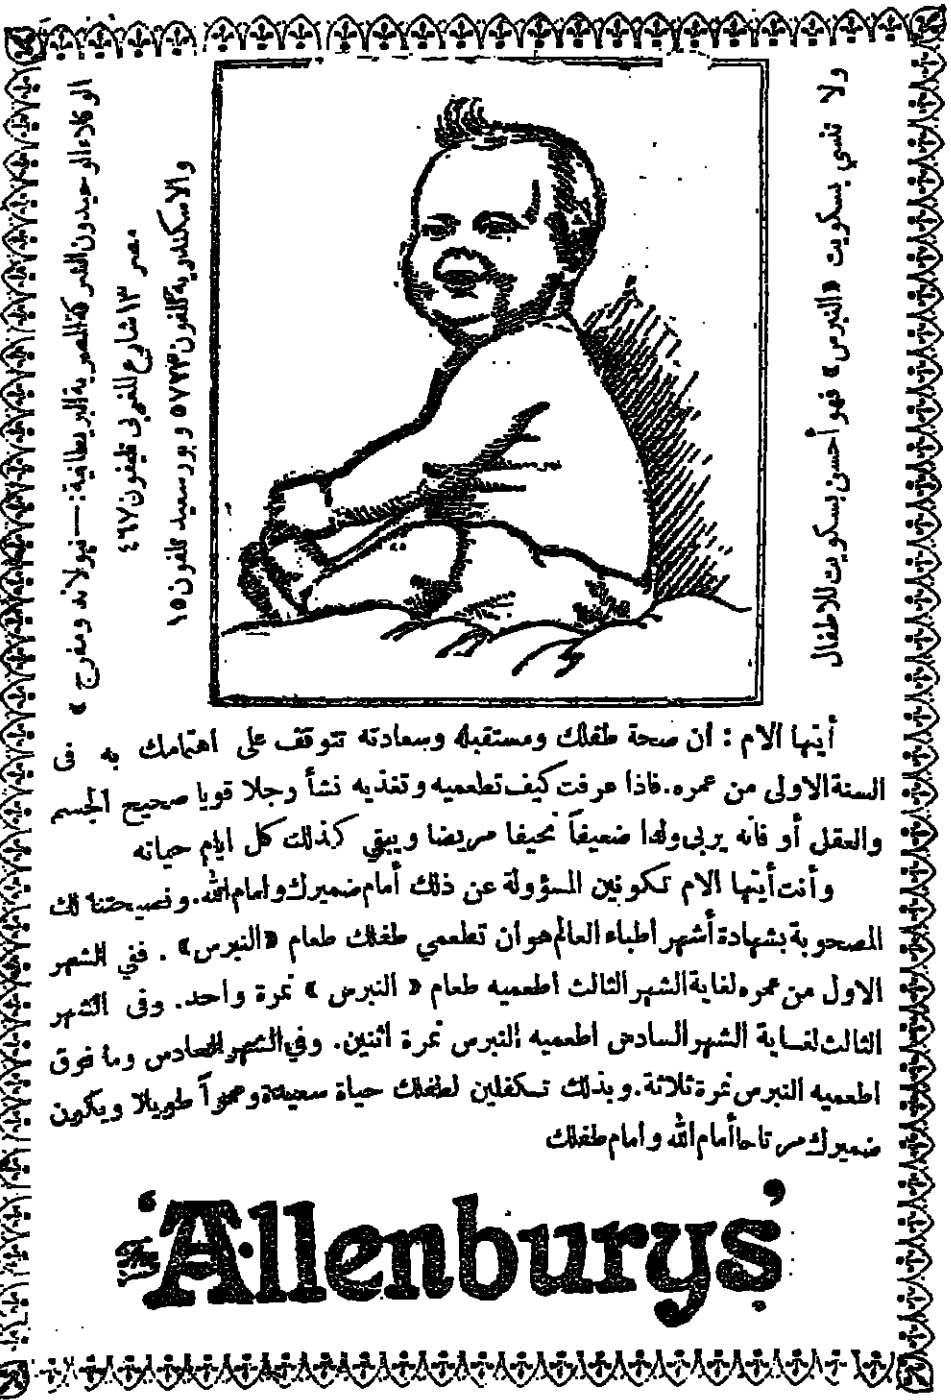 ولا تنسي بسكويت «النبرس» فهو أحسن بسكويت للاطفال
الوكلاء الوحيدون الشركة المصرية البريطانية :— نيولاند ومفرج »
مصر ١٣ شارع المغربي تليفون ٤٦٧
والاسكندرية تلفون ٥٧٧٣ وبورسعيد تلفون ١٥
أيتها الام : ان صحة طفلك ومستقبله وسعادته تتوقف على اهتمامك به فى
السنة الاولى من عمره. فاذا عرفت كيف تطعميه وتغذيه نشأ رجلا قويا صحيح الجسم
والعقل أو فانه يربى ولدا ضعيفاً نحيفا مريضا ويبقي كذلك كل ايام حياته
وأنت أيتها الام تكونين المسؤولة عن ذلك أمام ضميرك وامام الله. ونصيحتنا لك
المصحوبة بشهادة أشهر اطباء العالم هو ان تطعمي طفلك طعام «النبرس» . ففي الشهر
الاول من عمره لغاية الشهر الثالث اطعميه طعام « النبرس » نمرة واحد. وفى الشهر
الثالث لغاية الشهر السادس اطعميه النبرس نمرة اثنين. وفي الشهر السادس وما فوق
اطعميه النبرس نمرة ثلاثة. وبذلك تكفلين لطفلك حياة سعيدة وعمراً طويلا ويكون
ضميرك مرتاحا أمام الله وامام طفلك
‘Allenburys’